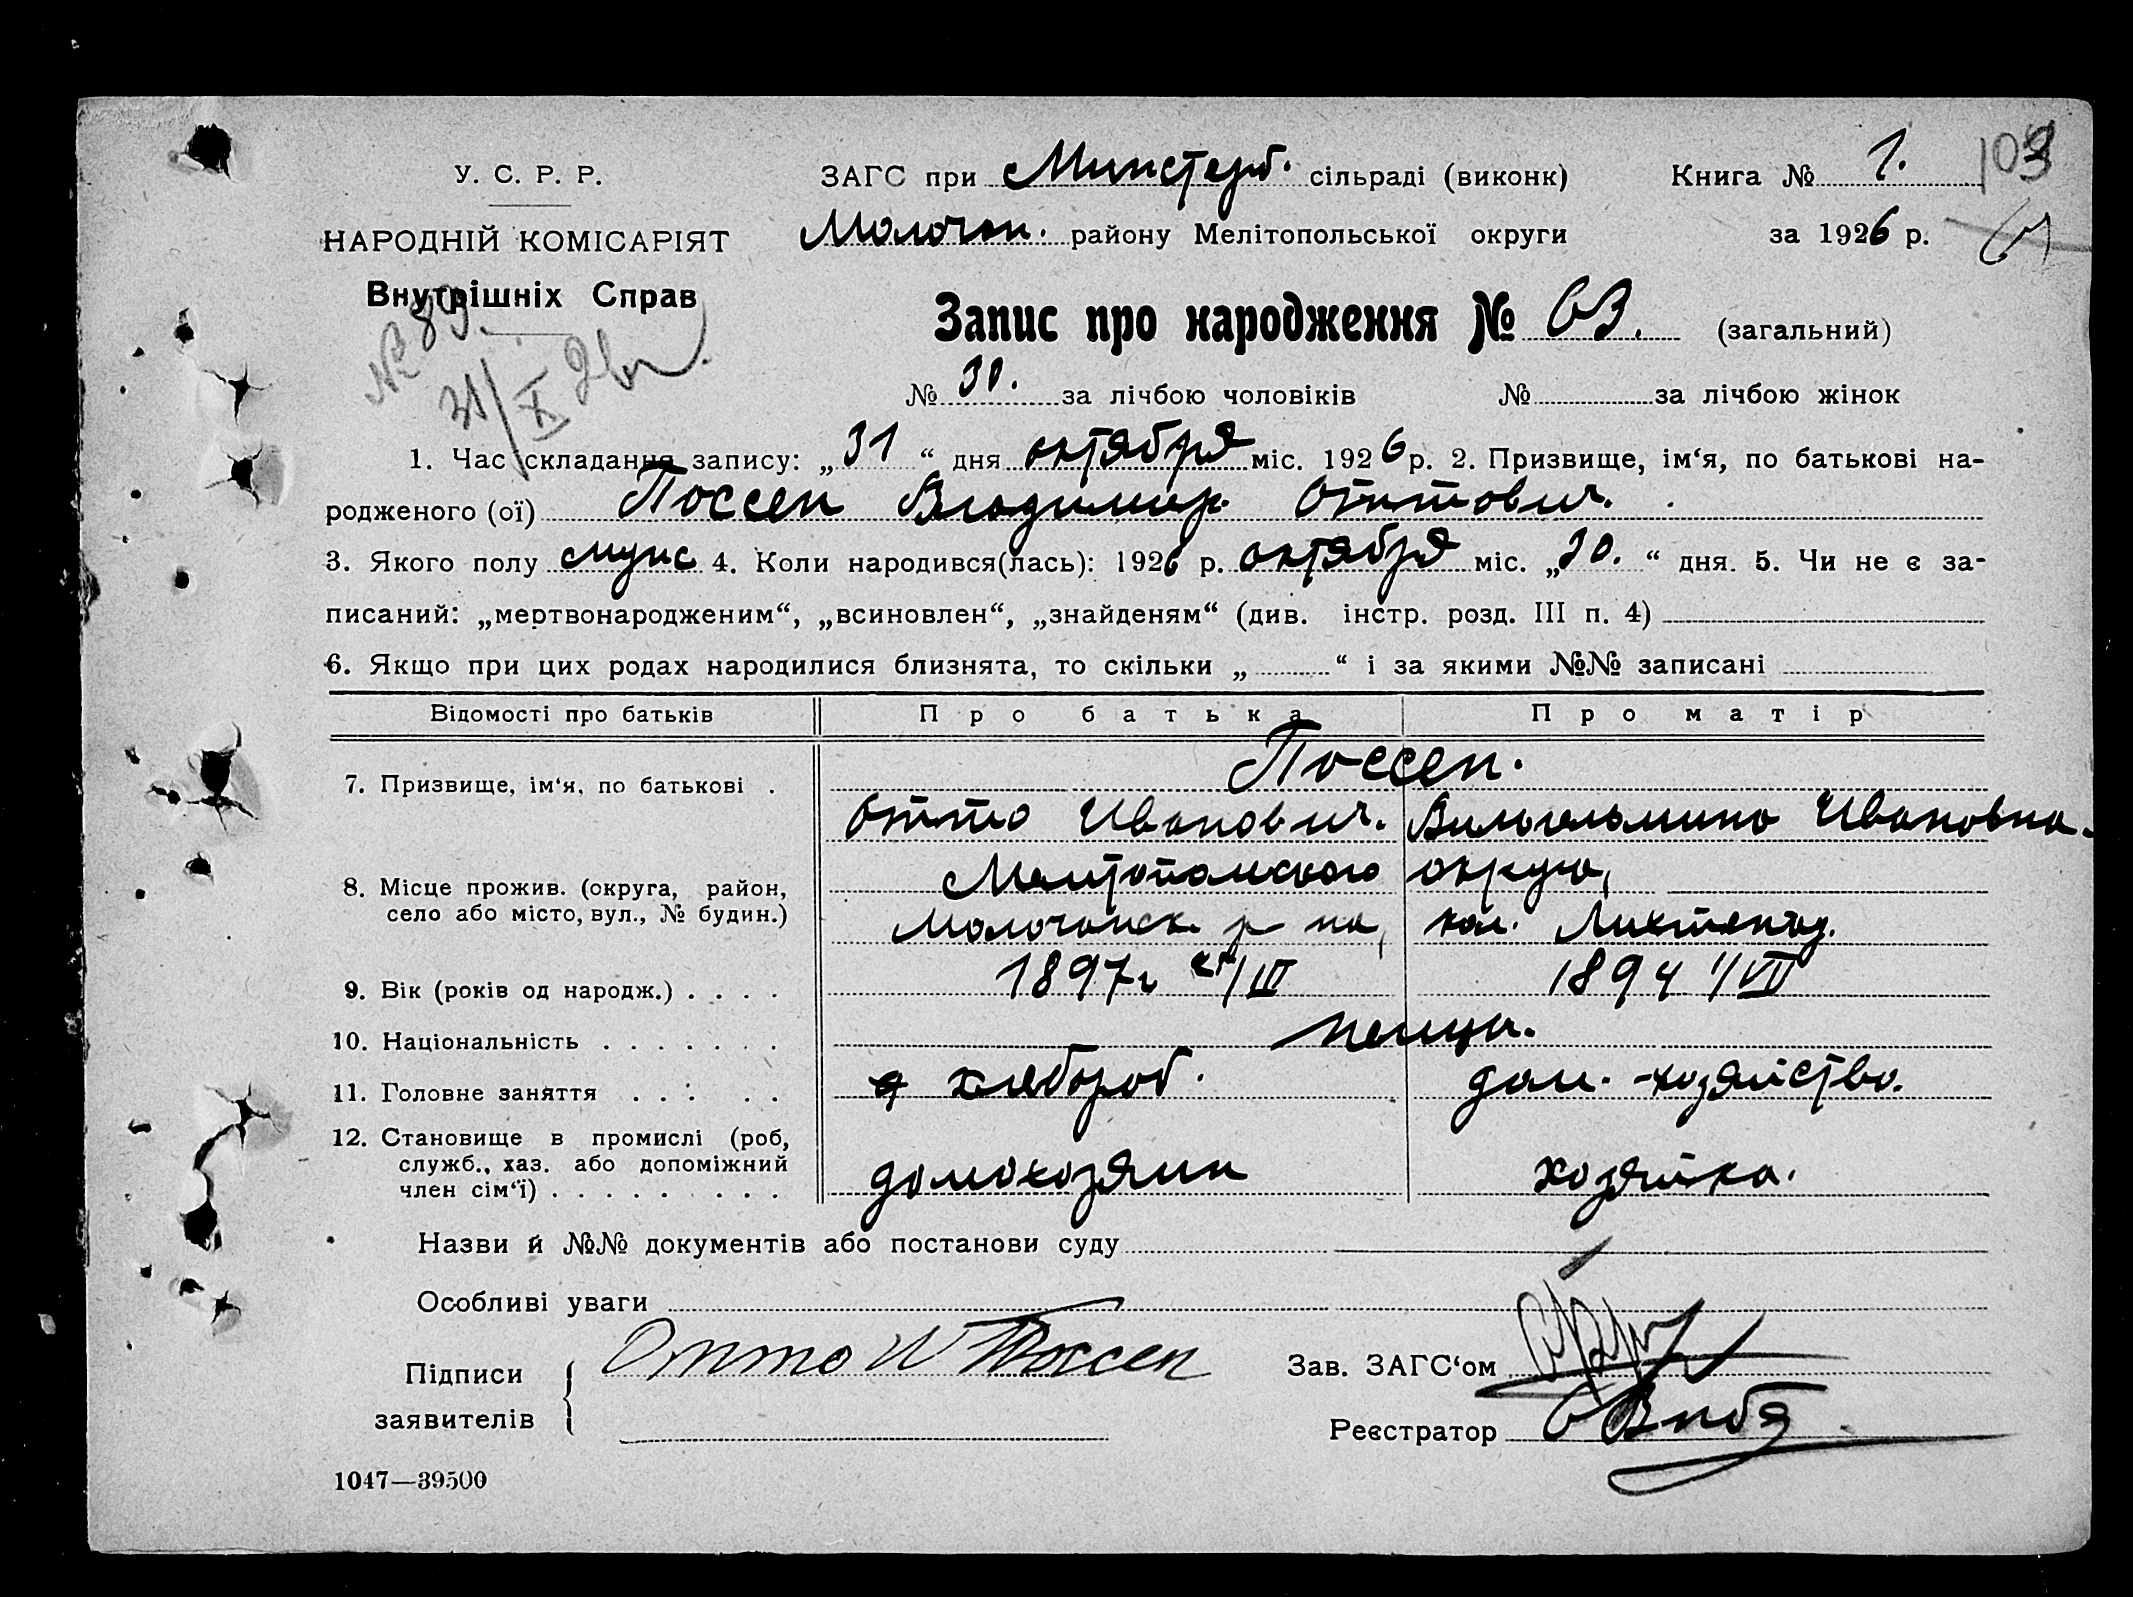 У. С. Р. Р.
НАРОДНІЙ КОМІСАРІЯТ
Внутрішніх Справ
ЗАГС при Минстерб. сільраді (виконк)
Молочан. району Мелітопольської округи
Книга № 1.
за 1926 р.
Запис про народження № 63. (загальний)
№ 30. за лічбою чоловіків № за лічбою жінок
1. Час складання запису: „31“ дня октября міс. 1926 р. 2. Призвище, ім‘я, по батькові на-
родженого (ої) Поссен Владимир Оттович.
3. Якого полу муж 4. Коли народився(лась): 1926 р. октября міс. „30.“ дня. 5. Чи не є за-
писаний: „мертвонародженим“, „всиновлен“, „знайденям“ (див. інстр. розд. III п. 4)
6. Якщо при цих родах народилися близнята, то скільки „ “ і за якими №№ записані
Відомості про батьків Про батька Про матір
Поссен.
7. Призвище, ім‘я, по батькові .
Отто Иванович. Вильгельмина Ивановна.
Мелитопольского округа,
8. Місце прожив. (округа, район,
село або місто, вул., № будин.)
Молочанск. р-на, кол. Лихтенау.
9. Вік (років од народж.) . . . . 1897 г /III 1894 1/VII
10. Національність . . . . . . . немцы.
11. Головне заняття . . . . . хлебороб. дом. хозяйство.
12. Становище в промислі (роб,
служб., хаз. або допоміжний
член сім‘ї) . . . . . . . . . домохозяин хозяйка.
Назви й №№ документів або постанови суду
Особливі уваги
Підписи
заявителів
Отто И Поссен
Зав. ЗАГС‘ом
Реєстратор
1047—39500